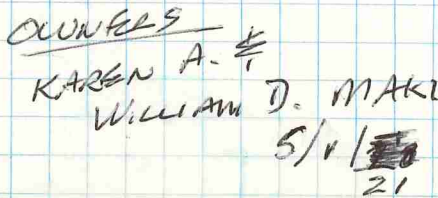 OWNERS
KAREN A. &
WILLIAM D. MAKI
5/1/
21